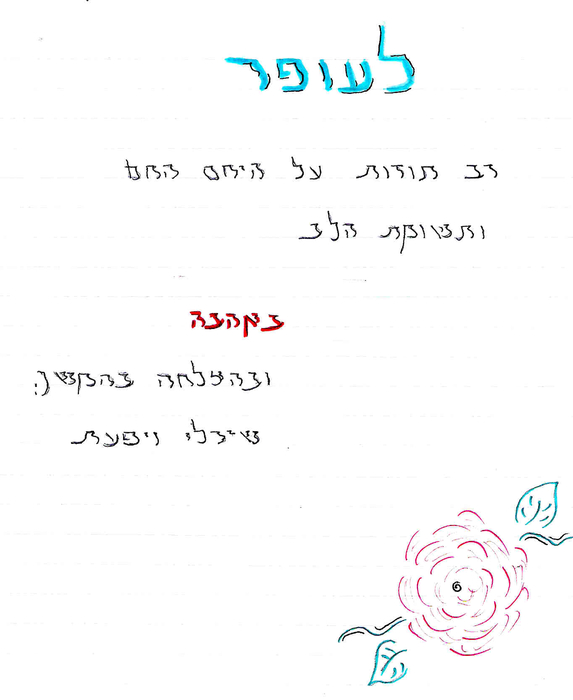 לעופר
רב תודות על היחס החם
ותשומת הלב
באהבה
ובהצלחה בהמשך.
שירלי ויפעת